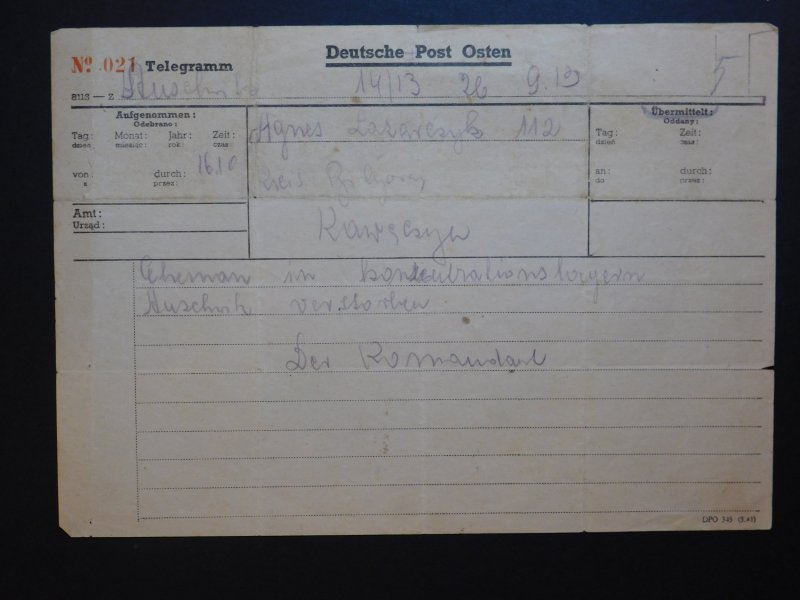 Deutsche Post Osten
Nº 021 Telegramm
aus — z Auschwitz 14/13 26 9.10 5
Aufgenommen:
Odebrano:
Tag: Monat: Jahr: Zeit:
dzień: miesiąc: rok: czas:
16.10
von: durch:
z przez:
Amt:
Urząd:
Agnes Lazarczyk 112
Kreis Bilgoray
Kawęczyn
Übermittelt:
Oddany:
Tag: Zeit:
dzień czas:
an: durch:
do przez:
Eheman in konzentrationslagern
Auschwitz verstorben
Der Komandant
DPO 345 (5.41)